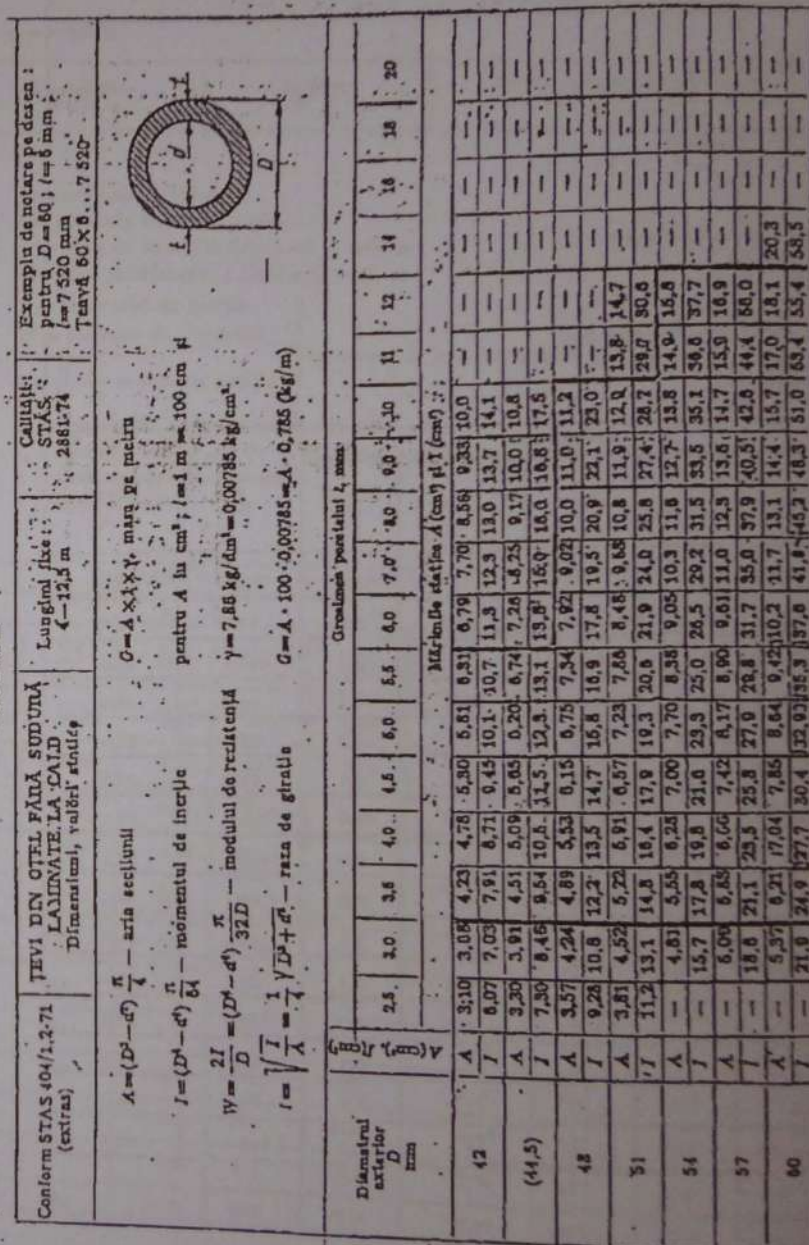 Conform STAS 404/1,2-71
(extras)
ŢEVI DIN OŢEL FĂRĂ SUDURĂ
LAMINATE LA CALD
Dimensiuni, valori statice
Lungimi fixe :
4—12,5 m
Calitate:
STAS
2881-74
Exemplu de notare pe desen :
pentru D=60 ; t=6 mm ;
l=7 520 mm
Ţeavă 60×6...7 520
A=(D²—d²) π/4 — aria secţiunii
I=(D⁴—d⁴) π/64 — momentul de inerţie
W= 2I/D =(D⁴—d⁴) π/32D — modulul de rezistenţă
i= √I/A = 1/4 √D²+d² — raza de giraţie
G=A×l×γ, masa pe metru
pentru A în cm²; l=1 m=100 cm şi
γ=7,85 kg/dm³=0,00785 kg/cm³
G=A·100·0,00785=A·0,785 (kg/m)
t d t
D
Diametrul
exterior
D
mm
A (cm²), I (cm⁴)
Grosimea peretelui t, mm
2,5 3,0 3,5 4,0 4,5 5,5 7,0 8,0 9,0 10 11 12 14 16 18 20
Mărimile statice A (cm²) şi I (cm⁴)
42 A 3,10 4,23 4,78 5,30 5,81 6,31 6,79 7,70 8,56 9,33 10,0 — — — — — —
I 6,07 7,03 7,91 8,71 9,45 10,1 10,7 11,3 12,3 13,0 13,7 14,1 — — — — — —
(44,5) A 3,30 3,91 4,51 5,09 5,65 6,20 6,74 7,26 8,25 9,17 10,0 10,8 — — — — — —
I 7,30 8,46 9,54 10,5 11,5 13,1 13,8 16,0 17,5 — — — — — —
48 A 3,57 4,24 4,89 5,53 6,15 6,75 7,34 7,92 9,02 10,0 11,0 11,2 — — — — — —
I 9,28 10,8 12,2 13,5 14,7 15,8 16,9 17,8 19,5 20,9 22,1 23,0 — — — — — —
51 A 3,81 4,52 5,22 5,91 6,57 7,23 7,86 8,48 9,68 10,8 11,9 13,8 14,7 — — — —
I 11,2 13,1 14,8 16,4 17,9 19,3 20,6 21,9 24,0 25,8 27,4 28,7 29,7 30,6 — — — —
54 A — 4,81 5,55 6,28 7,00 7,70 8,38 9,05 10,3 11,6 12,7 13,8 14,9 — — — —
I — 15,7 17,8 19,8 21,6 23,3 25,0 26,5 29,2 31,5 33,5 35,1 37,7 — — — —
57 A — 7,42 8,17 8,90 9,61 11,0 12,3 13,6 14,7 15,9 16,9 — — — —
I — 18,6 21,1 23,5 25,8 27,9 29,8 31,7 35,0 37,9 40,5 42,6 44,4 — — — —
60 A — 5,37 6,21 7,85 8,64 9,42 10,2 11,7 13,1 14,4 15,7 17,0 18,1 20,3 — — —
I — 21,9 24,9 27,7 30,4 32,9 37,6 41,8 51,0 53,4 55,4 58,5 — — —